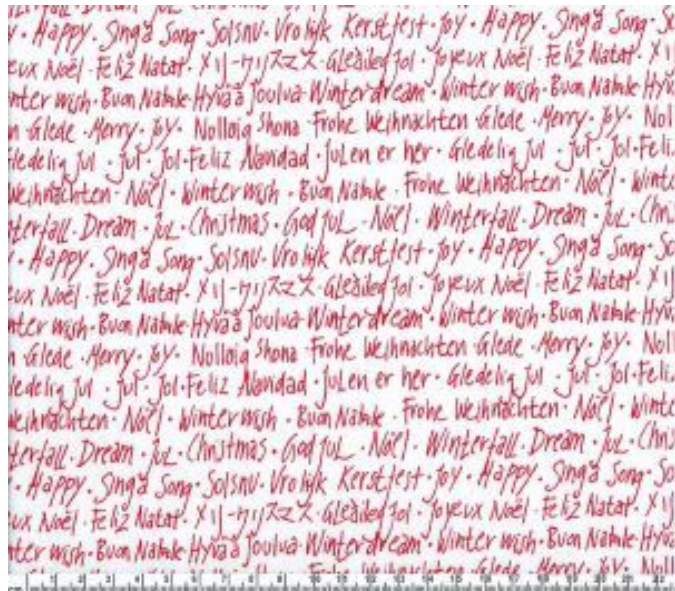 · Happy · Sing a Song · Solsnu · Vrolijk Kerstfest · Joy · Happy · Sing a Song · So
eux Noël · Feliz Natal · メリークリスマス · Gledileg Jol · Joyeux Noël · Feliz Natal · メリ
nter wish · Buon Natale · Hyvää Joulua · Winterdream · Winter wish · Buon Natale · Hyvä
n Glede · Merry · Joy · Nollaig Shona · Frohe Weihnachten Glede · Merry · Joy · Noll
ledelig Jul · Jul · Jol · Feliz Navidad · Julen er her · Gledelig Jul · Jul · Jol · Feli
Weihnachten · Noël · Winter wish · Buon Natale · Frohe Weihnachten · Noël · Winte
terfall · Dream · Jul · Christmas · God Jul · Noël · Winterfall · Dream · Jul · Chris
· Happy · Sing a Song · Solsnu · Vrolijk Kerstfest · Joy · Happy · Sing a Song · So
eux Noël · Feliz Natal · メリークリスマス · Gledileg Jol · Joyeux Noël · Feliz Natal · メリ
nter wish · Buon Natale · Hyvää Joulua · Winterdream · Winter wish · Buon Natale · Hyvä
n Glede · Merry · Joy · Nollaig Shona · Frohe Weihnachten Glede · Merry · Joy · Noll
ledelig Jul · Jul · Jol · Feliz Navidad · Julen er her · Gledelig Jul · Jul · Jol · Feli
Weihnachten · Noël · Winter wish · Buon Natale · Frohe Weihnachten · Noël · Winte
terfall · Dream · Jul · Christmas · God Jul · Noël · Winterfall · Dream · Jul · Chris
· Happy · Sing a Song · Solsnu · Vrolijk Kerstfest · Joy · Happy · Sing a Song · So
eux Noël · Feliz Natal · メリークリスマス · Gledileg Jol · Joyeux Noël · Feliz Natal · メリ
nter wish · Buon Natale · Hyvää Joulua · Winterdream · Winter wish · Buon Natale · Hyvä